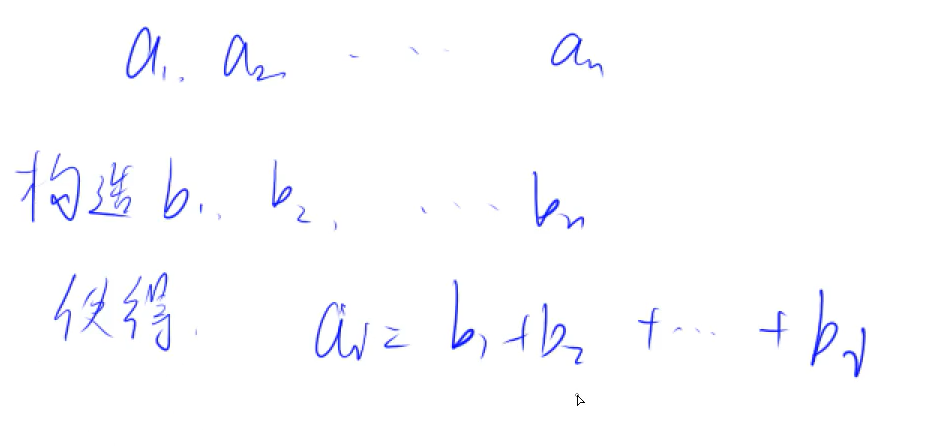 a₁, a₂ ⋯ aₙ
构造 b₁, b₂, ⋯ bₙ
使得. aᵢ = b₁ + b₂ + ⋯ + bᵢ